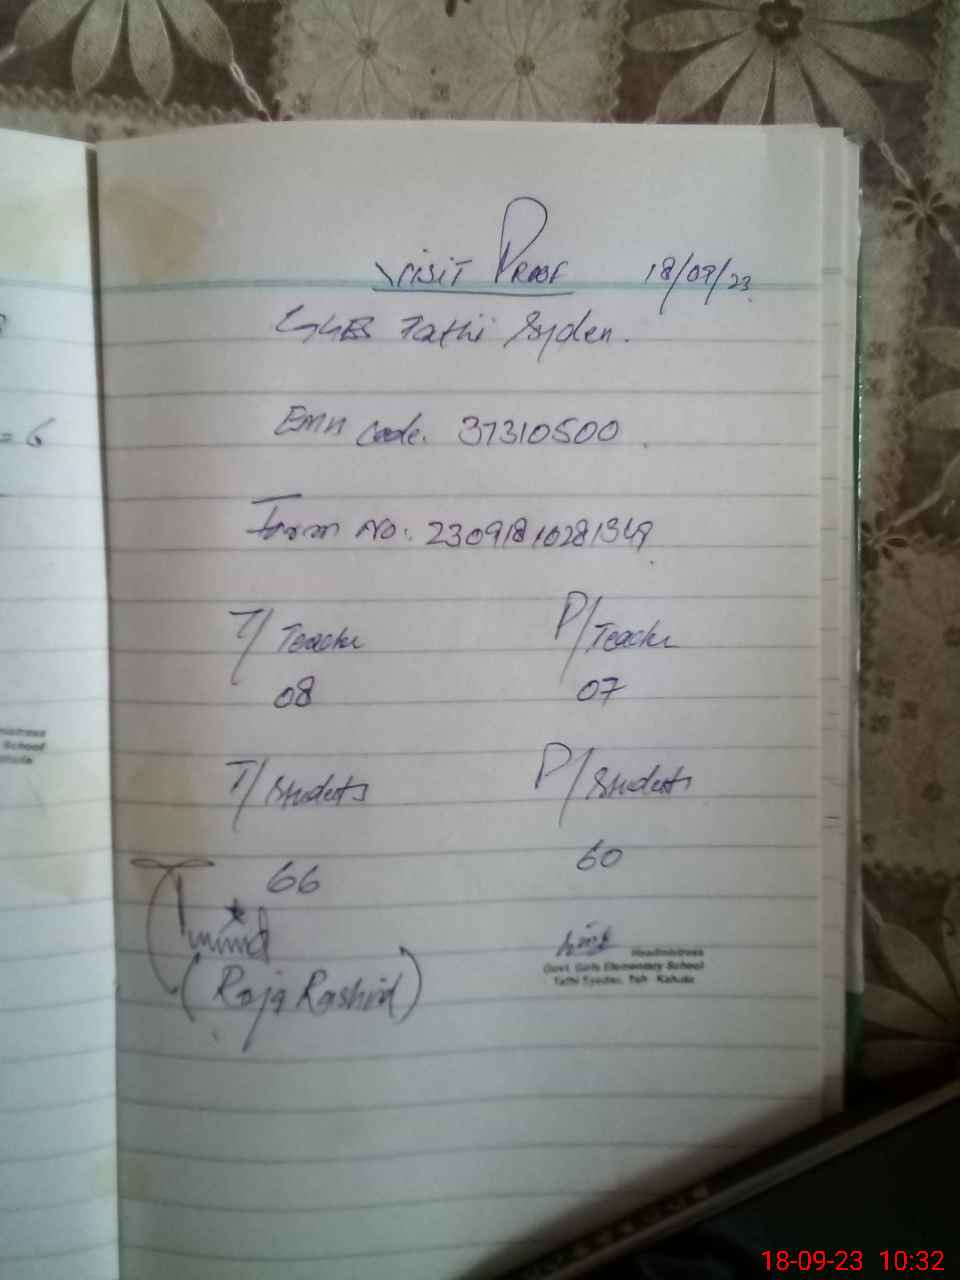 = 6
School
Visit Proof 18/09/23
GGES Tathi Syden.
Emis Code. 37310500
Form No: 23091810281349
T/Teacher P/Teacher
08 07
T/Students P/Students
66 60
(Raja Rashid)
Headmistress
Govt. Girls Elementary School
Tathi Syedan, Teh Kahuta
18-09-23 10:32